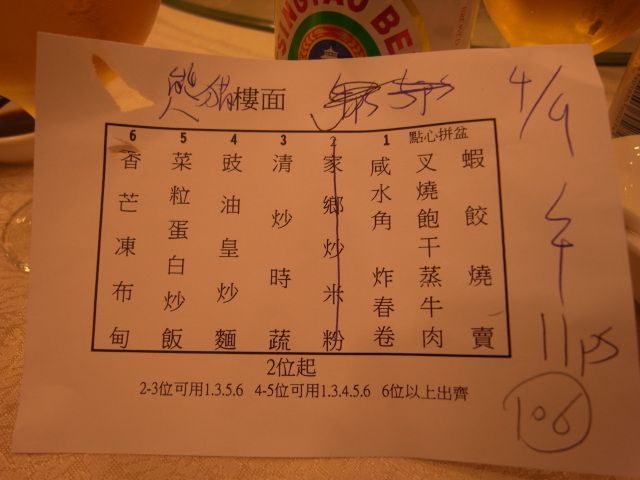 TSINGTAO BE
樓面
4/9
午
11ps
106
點心拼盆
蝦餃燒賣
叉燒飽干蒸牛肉
1
咸水角炸春卷
2
家鄉炒米粉
3
清炒時蔬
4
豉油皇炒麵
5
菜粒蛋白炒飯
6
香芒凍布甸
2位起
2-3位可用1.3.5.6 4-5位可用1.3.4.5.6 6位以上出齊